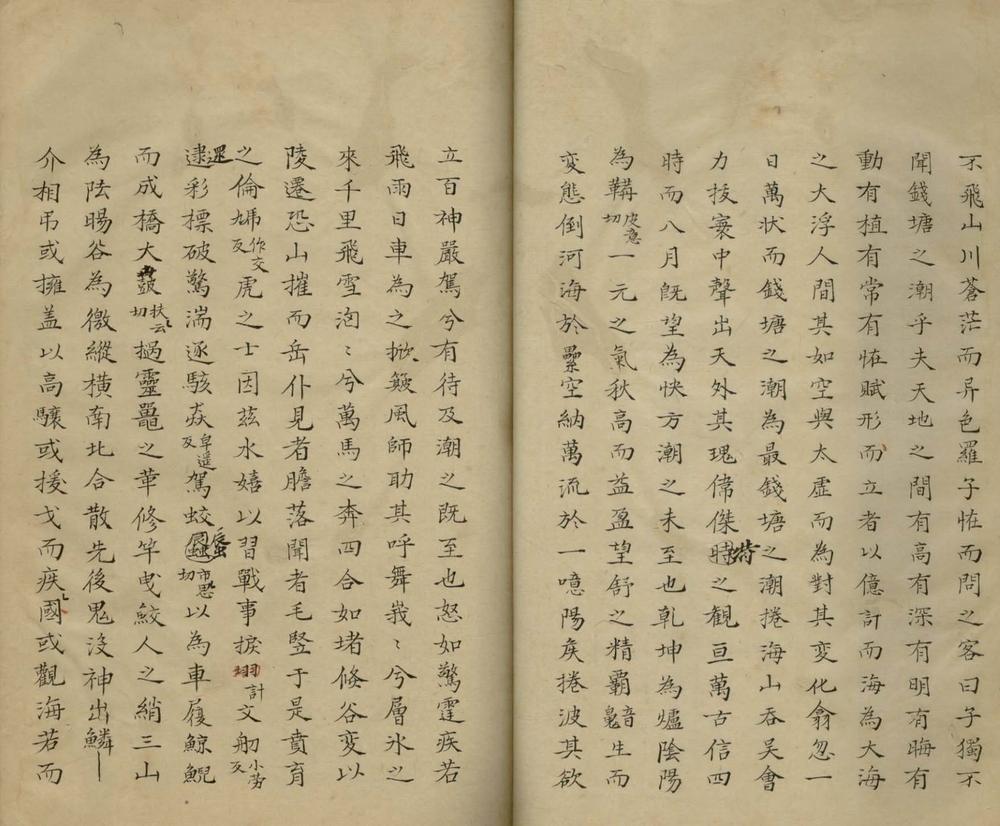 不飛山川蒼茫而异色羅子恠而問之客曰子獨不
聞錢塘之潮乎夫天地之間有高有深有明有晦有
動有植有常有恠賦形而立者以億計而海為大海
之大浮人間其如空與太虛而為對其変化翕忽一
日萬狀而錢塘之潮為最錢塘之潮捲海山吞吳會
力拔寰中聲出天外其瑰偉傑時之観亘萬古信四
時而八月旣望為快方潮之未至也乾坤為爐陰陽
為鞴皮意切一元之氣秋高而益盈望舒之精霸音生而
変態倒河海於空納萬流於一噫陽矦捲波其欲
立百神嚴駕兮有待及潮之既至也怒如驚霆疾若
飛雨日車為之掀簸風師助其呼舞峩〻兮層氷之
來千里飛雪洶〻兮萬馬之奔四合如堵倏谷変以
陵遷恐山摧而岳仆見者膽落聞者毛竪于是賁育
之倫虎之士因茲水嬉以習戰事捩計文舠小劳反
還逮彩標破驚湍逐駭猋卑遥反駕蛟蜃以為車履鯨鯢
而成橋大鼖扶云切撾靈鼉之革修竿曳鮫人之綃三山
為阹暘谷為徼縱橫南北合散先後鬼沒神出鱗
介相弔或擁盖以高驤或援戈而疾國或觀海若而